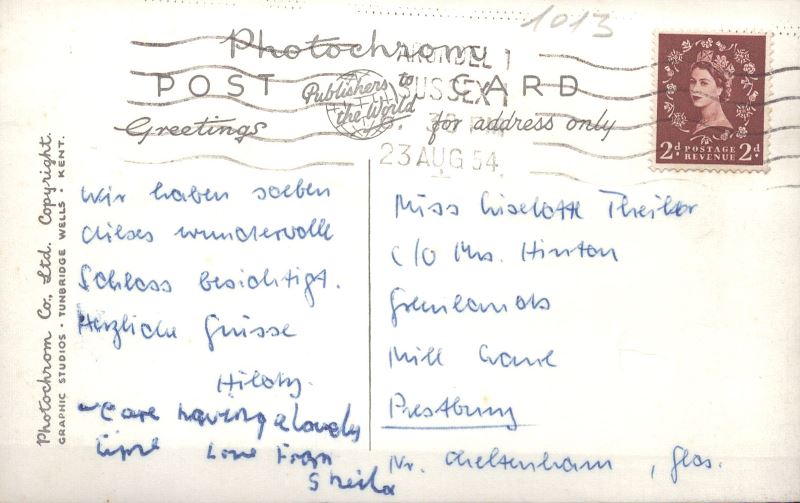 1013
Photochrom
POST CARD
Publishers to the World
Greetings
for address only
ARUNDEL
SUSSEX
23 AUG 54
2d POSTAGE REVENUE 2d
Photochrom Co., Ltd. Copyright.
GRAPHIC STUDIOS · TUNBRIDGE WELLS · KENT.
Wir haben soeben
dieses wundervolle
Schloss besichtigt.
Herzliche Grüsse
are having a lovely
time Love From
Sheila
Miss Liselotte Theiler
c/o Mrs. Hinton
Greenlands
Mill Lane
Prestbury
Nr. Cheltenham, Glos.